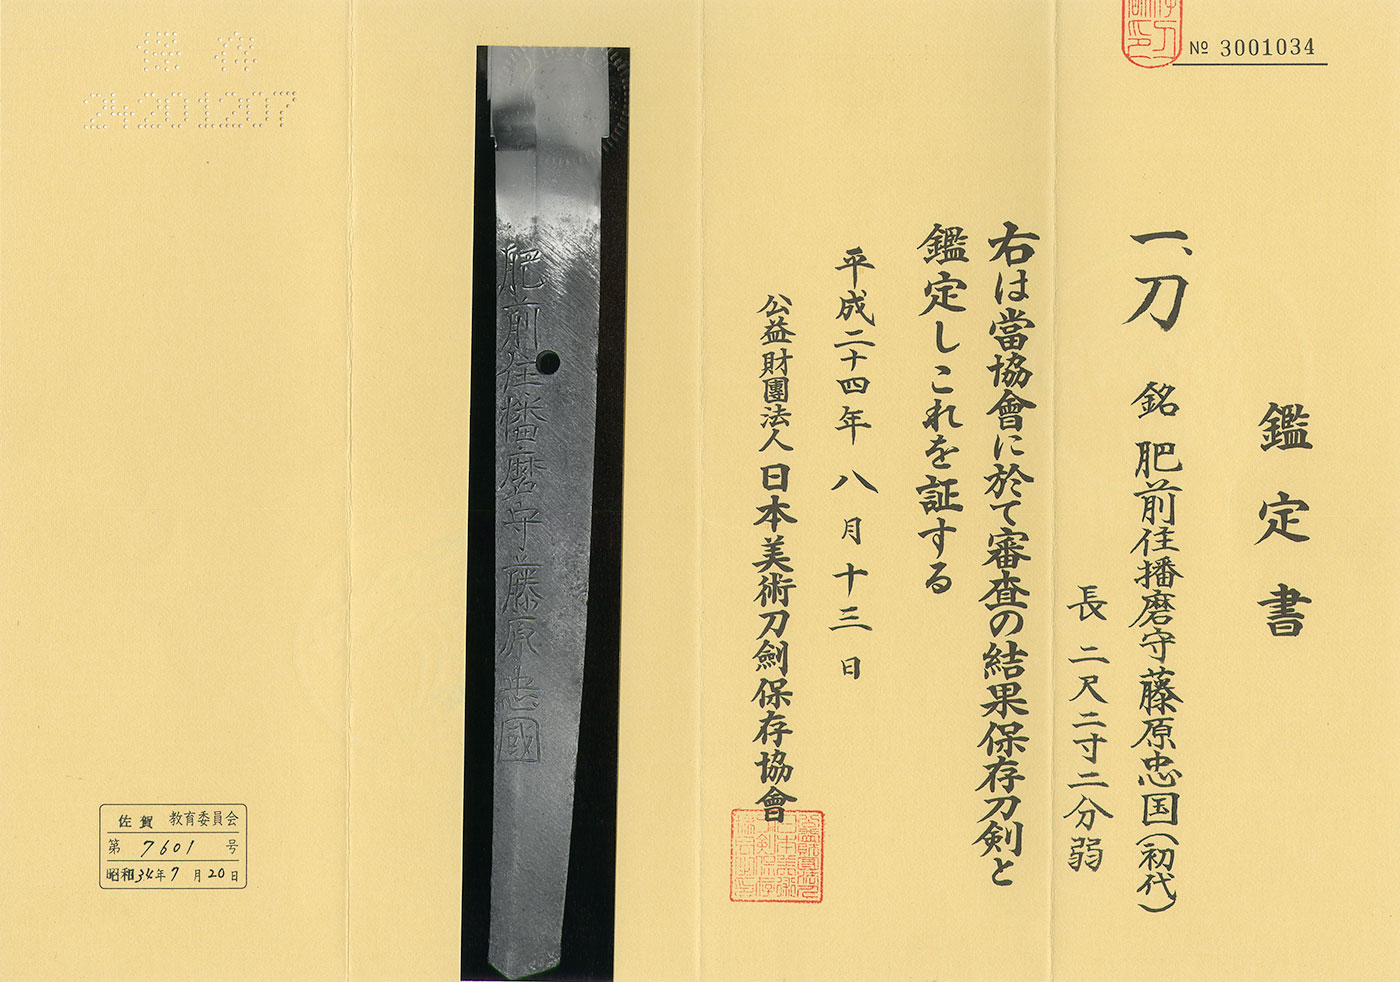 № 3001034
鑑定書
一、刀 銘 肥前住播磨守藤原忠国(初代)
長 二尺二寸二分弱
右は當協會に於て審査の結果保存刀剣と
鑑定しこれを証する
平成二十四年 八月十三日
公益財團法人 日本美術刀劍保存協會
肥前住播磨守藤原忠國
保存
24201207
佐賀 教育委員会
第 7601 号
昭和 34年 7月 20日